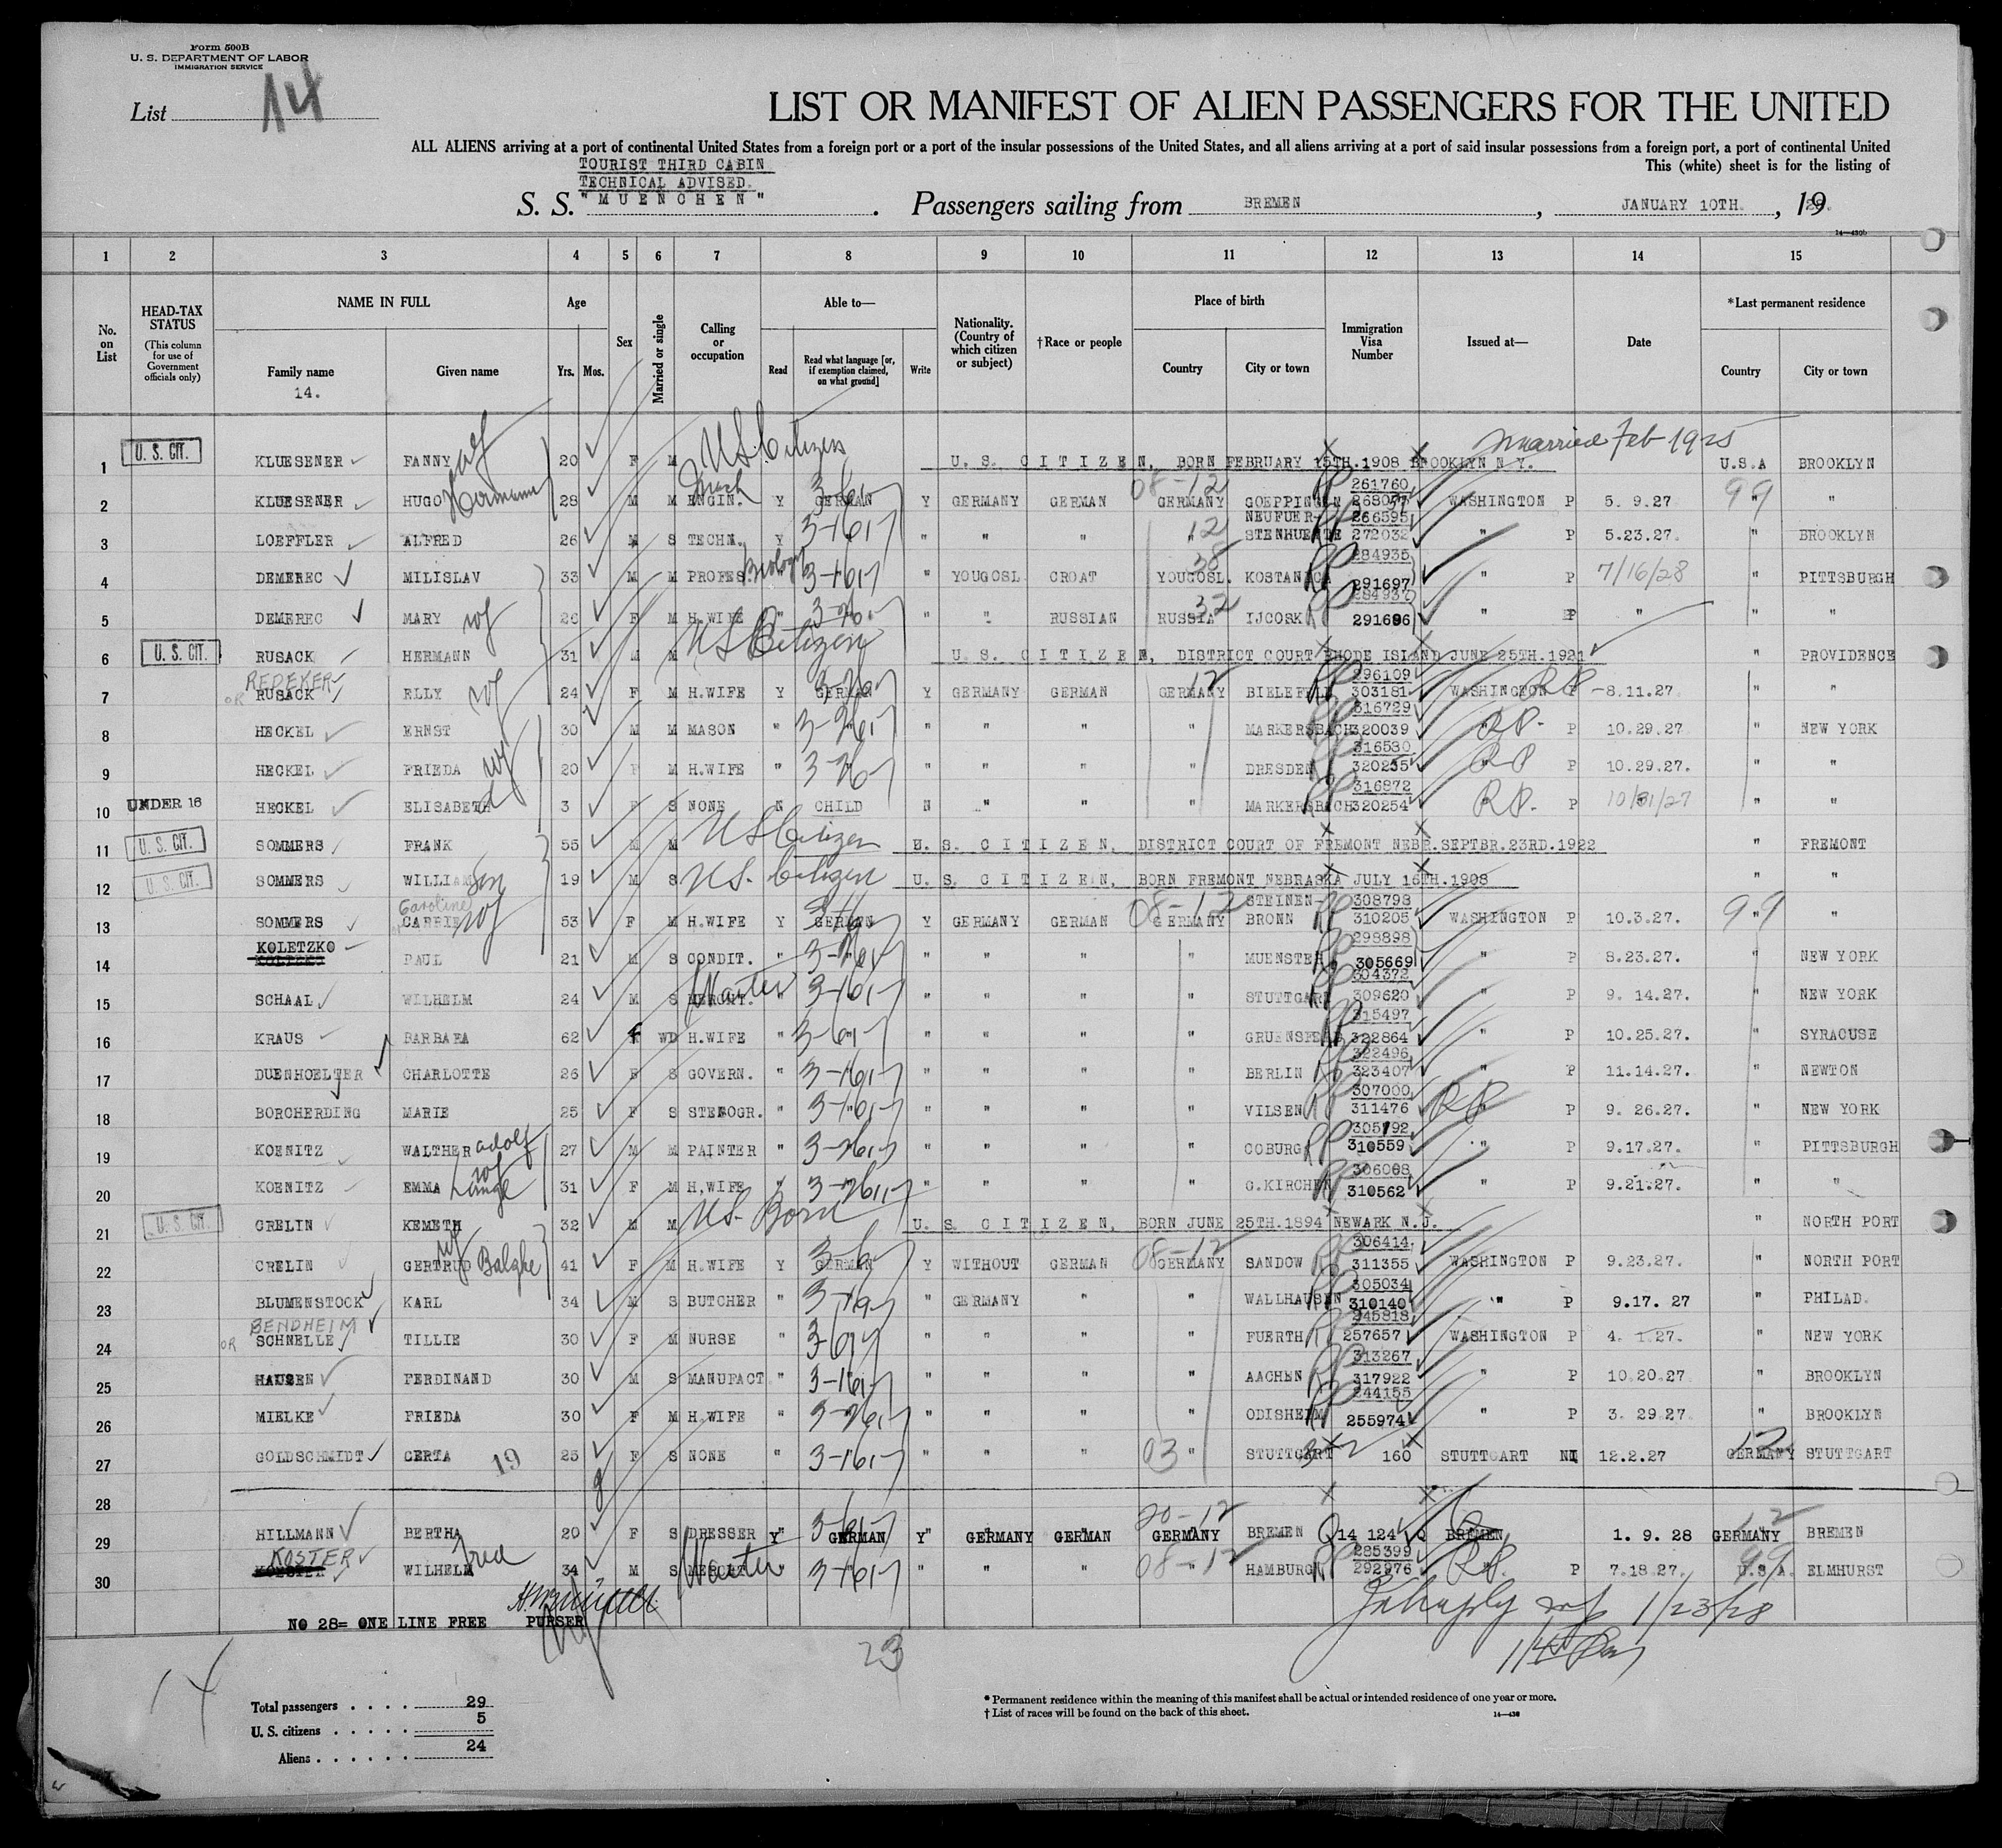 Form 500B
U. S. DEPARTMENT OF LABOR
IMMIGRATION SERVICE
List 14
LIST OR MANIFEST OF ALIEN PASSENGERS FOR THE UNITED
ALL ALIENS arriving at a port of continental United States from a foreign port or a port of the insular possessions of the United States, and all aliens arriving at a port of said insular possessions from a foreign port, a port of continental United
This (white) sheet is for the listing of
TOURIST THIRD CABIN
TECHNICAL ADVISED.
S. S. "MUENCHEN". Passengers sailing from BREMEN, JANUARY 10TH., 19
14—430b
1 2 3 4 5 6 7 8 9 10 11 12 13 14 15
No. on List
HEAD-TAX STATUS (This column for use of Government officials only)
NAME IN FULL Family name Given name
14.
Age Yrs. Mos.
Sex
Married or single
Calling or occupation
Able to— Read Read what language [or, if exemption claimed, on what ground] Write
Nationality. (Country of which citizen or subject)
†Race or people
Place of birth Country City or town
Immigration Visa Number
Issued at—
Date
*Last permanent residence Country City or town
Married Feb 1925
1 U. S. CIT. KLUESENER FANNY wf 20 F M US Citizen U. S. CITIZEN, BORN FEBRUARY 15TH.1908 BROOKLYN N.Y. U.S.A BROOKLYN
261760
2 KLUESENER HUGO Hermann 28 M M ENGIN. Y GERMAN Y GERMANY GERMAN 08-12 GERMANY GOEPPINGEN WASHINGTON P 5. 9.27. 99 "
NEUFUER- 266595
3 LOEFFLER ALFRED 26 M S TECHN. Y " " " 12 " STENHUETTE 272032 " P 5.23.27. " BROOKLYN
284935
4 DEMEREC MILISLAV 33 M M PROFES. Biology " " " YOUGOSL. CROAT 38 YOUGOSL. KOSTANICA 291697 " P 7/16/28 " PITTSBURGH
284937
5 DEMEREC MARY wf 26 F M H.WIFE " " " " RUSSIAN 32 RUSSIA IJCOSK 291696 " P " " "
6 U. S. CIT. RUSACK HERMANN 31 M M US Citizen U. S. CITIZEN, DISTRICT COURT RHODE ISLAND JUNE 25TH.1921 " PROVIDENCE
REDEKER 296109
7 OR RUSACK RLLY wf 24 F M H.WIFE Y GERMAN Y GERMANY GERMAN 12 GERMANY BIELEFELD 303181 WASHINGTON P 8.11.27. " "
316729
8 HECKEL ERNST 30 M M MASON " " " " " " MARKERSBACH 320039 " RP P 10.29.27 " NEW YORK
316530
9 HECKEL FRIEDA wf 20 F M H.WIFE " " " " " " DRESDEN 320235 " RP P 10.29.27. " "
316872
10 UNDER 16 HECKEL ELISABETH d 3 F S NONE N CHILD N " " " MARKERSBACH 320254 RP. P 10/31/27 " "
11 U. S. CIT. SOMMERS FRANK 55 M M US Citizen U. S. CITIZEN, DISTRICT COURT OF FREMONT NEBR.SEPTBR.23RD.1922 " FREMONT
12 U. S. CIT. SOMMERS WILLIAM son 19 M S US. Citizen U. S. CITIZEN, BORN FREMONT NEBRASKA JULY 15TH.1908 " "
Caroline STEINEN- 308798
13 SOMMERS CARRIE wf 53 F M H.WIFE Y GERMAN Y GERMANY GERMAN 08-12 GERMANY BRONN 310205 WASHINGTON P 10.3.27. 99 "
298898
14 KOLETZKO PAUL 21 M S CONDIT. " " " " " " MUENSTER 305669 " P 8.23.27. " NEW YORK
304372
15 SCHAAL WILHELM 24 M S Waiter " " " " " " STUTTGART 309620 " P 9. 14.27. " NEW YORK
315497
16 KRAUS BARBARA 62 f WD H.WIFE " " " " " " 322864 " P 10.25.27. " SYRACUSE
322496
17 DUENHOELTER CHARLOTTE 26 F S GOVERN. " " " " " " BERLIN 323407 " P 11.14.27. " NEWTON
307000
18 BORCHERDING MARIE 25 F S STENOGR. " " " " " " VILSEN 311476 RP P 9. 26.27. " NEW YORK
305192
19 KOENITZ WALTHER adolf 27 M M PAINTER " " " " " " COBURG 310559 " P 9.17.27. " PITTSBURGH
306068
20 KOENITZ EMMA wf 31 F M H,WIFE " " " " " " G.KIRCHEN 310562 " P 9.21.27. " "
21 U. S. CIT. CRELIN KEMETH 32 M M US. Born U. S. CITIZEN, BORN JUNE 25TH.1894 NEWARK N.J. " NORTH PORT
306414
22 CRELIN GERTRUD wf 41 F M H.WIFE Y GERMAN Y WITHOUT GERMAN 08-12 GERMANY SANDOW 311355 WASHINGTON P 9.23.27. " NORTH PORT
305034
23 BLUMENSTOCK KARL 34 M S BUTCHER " " " GERMANY " " WALLHAUSEN 310140 " P 9.17. 27 " PHILAD.
BENDHEIM 245818
24 OR SCHNELLE TILLIE 30 F M NURSE " " " " " " FUERTH 257657 WASHINGTON P 4. 1.27. " NEW YORK
313267
25 HAUSEN FERDINAND 30 M S MANUFACT. " " " " " " AACHEN 317922 " P 10.20.27 " BROOKLYN
244155
26 MIELKE FRIEDA 30 F M H.WIFE " " " " " " ODISHEIM 255974 " P 3. 29.27. " BROOKLYN
27 GOLDSCHMIDT CERTA 19 25 F S NONE " " " " " 03 " STUTTGART 160 STUTTGART NI 12.2.27 12 GERMANY STUTTGART
28
29 HILLMANN BERTHA 20 F S DRESSER Y" GERMAN Y" GERMANY GERMAN 20-12 GERMANY BREMEN 14 124 BREMEN 1. 9. 28 GERMANY BREMEN
KOSTER 285399
30 WILHELM Fred 34 M S Waiter " " " " " 08-12 HAMBURG 292976 RP. P 7.18.27. 99 U.S.A. ELMHURST
1/23/28
NO 28= ONE LINE FREE PURSER
14
23
Total passengers . . . . 29
5
U. S. citizens . . . . .
Aliens . . . . . . 24
* Permanent residence within the meaning of this manifest shall be actual or intended residence of one year or more.
† List of races will be found on the back of this sheet.
14—430